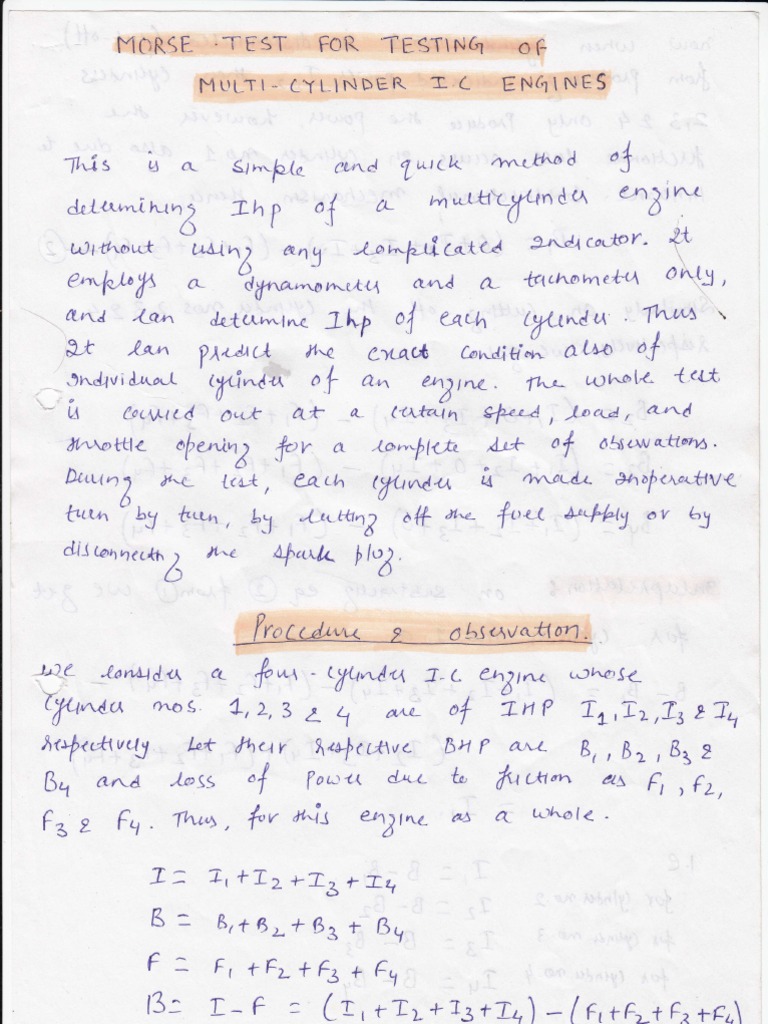 MORSE TEST FOR TESTING OF
MULTI-CYLINDER I.C ENGINES
This is a simple and quick method of
determining Ihp of a multicylinder engine
without using any complicated Indicator. It
employs a dynamometer and a tachometer only,
and can determine Ihp of each cylinder. Thus
It can predict the exact condition also of
individual cylinder of an engine. The whole test
is carried out at a certain speed, load, and
throttle opening for a complete set of observations.
During the test, each cylinder is made inoperative
turn by turn, by cutting off the fuel supply or by
disconnecting the spark plug.
Procedure & observation.
We consider a four-cylinder I.C engine whose
cylinder nos. 1, 2, 3 & 4 are of IHP I₁, I₂, I₃ & I₄
respectively Let their respective BHP are B₁, B₂, B₃ &
B₄ and loss of power due to friction as F₁, F₂,
F₃ & F₄. Thus, for this engine as a whole.
I = I₁+I₂+I₃+I₄
B = B₁+B₂+B₃+B₄
F = F₁+F₂+F₃+F₄
B = I-F = (I₁+I₂+I₃+I₄)-(F₁+F₂+F₃+F₄)